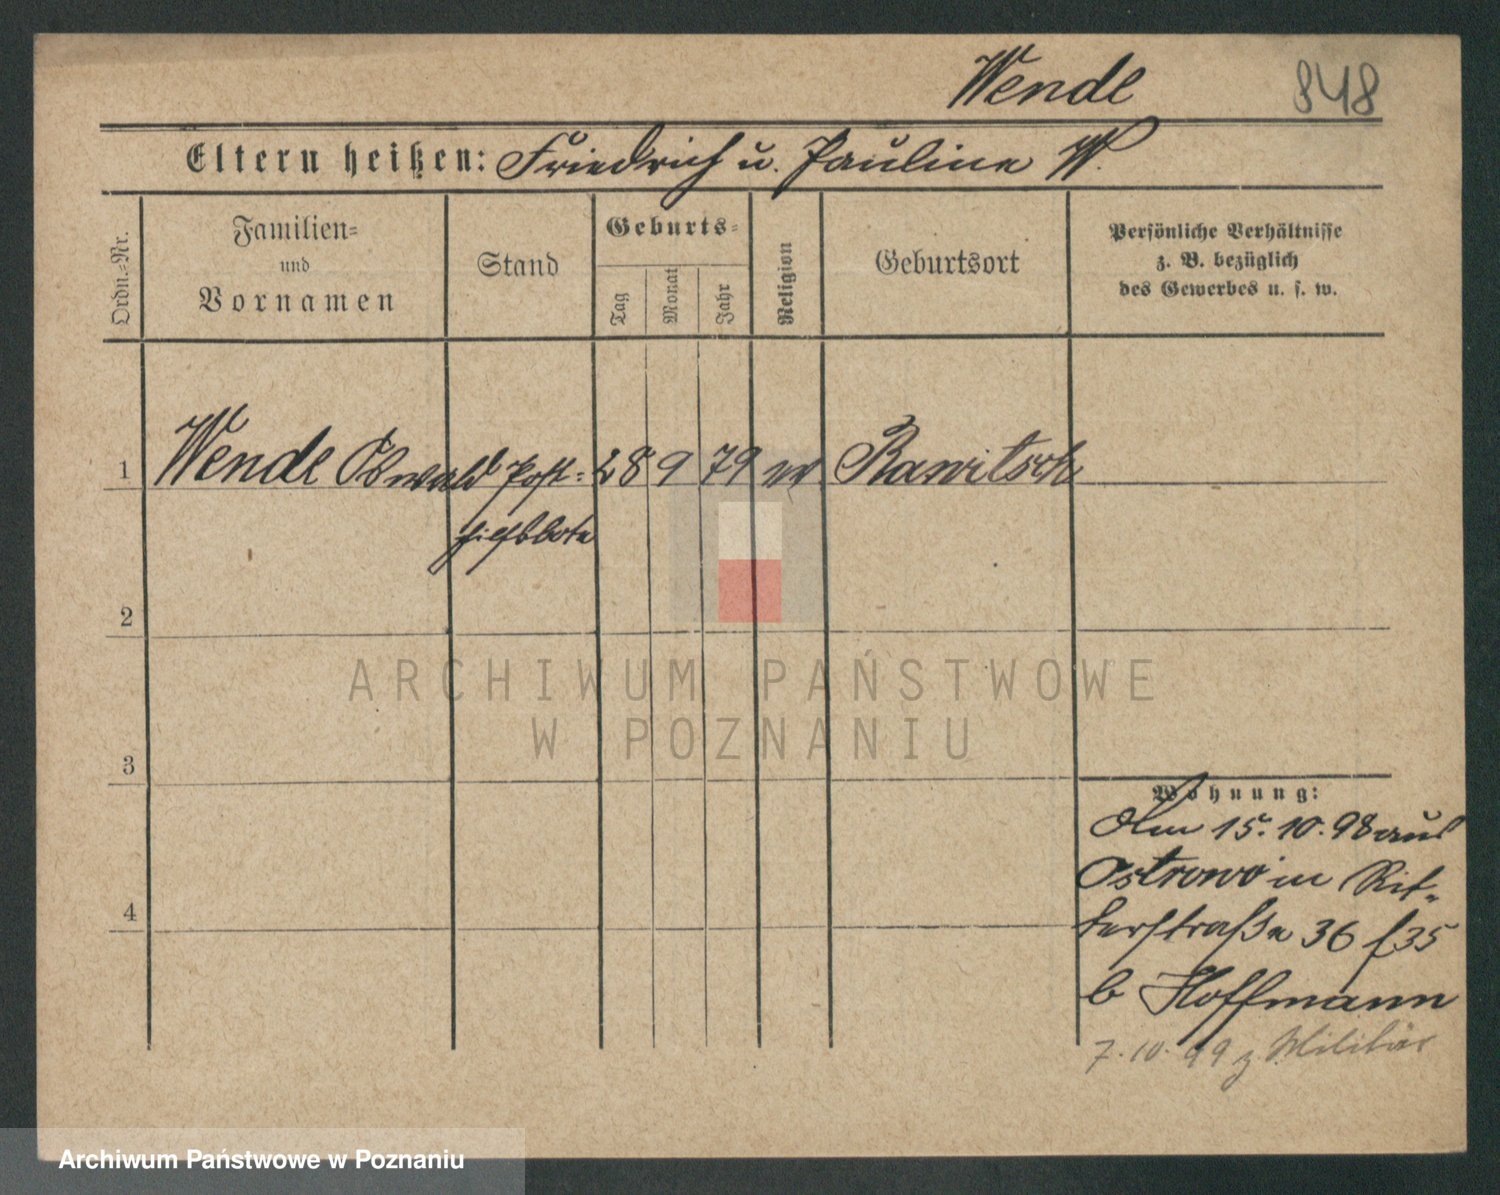 Wende 848
Eltern heißen: Friedrich u. Pauline W.
Ordn.-Nr.
Familien-
und
Vornamen
Stand
Geburts-
Tag
Monat
Jahr
Religion
Geburtsort
Persönliche Verhältnisse
z. B. bezüglich
des Gewerbes u. s. w.
1 Wende Oswald Post- 28 9 79 ev Rawitsch
hilfsbote
2
ARCHIWUM PAŃSTWOWE
W POZNANIU
3
Wohnung:
Am 15.10.98 aus
Ostrowo in Rit-
terstraße 36 f 35
b Hoffmann
7.10.99 z Militär
4
Archiwum Państwowe w Poznaniu